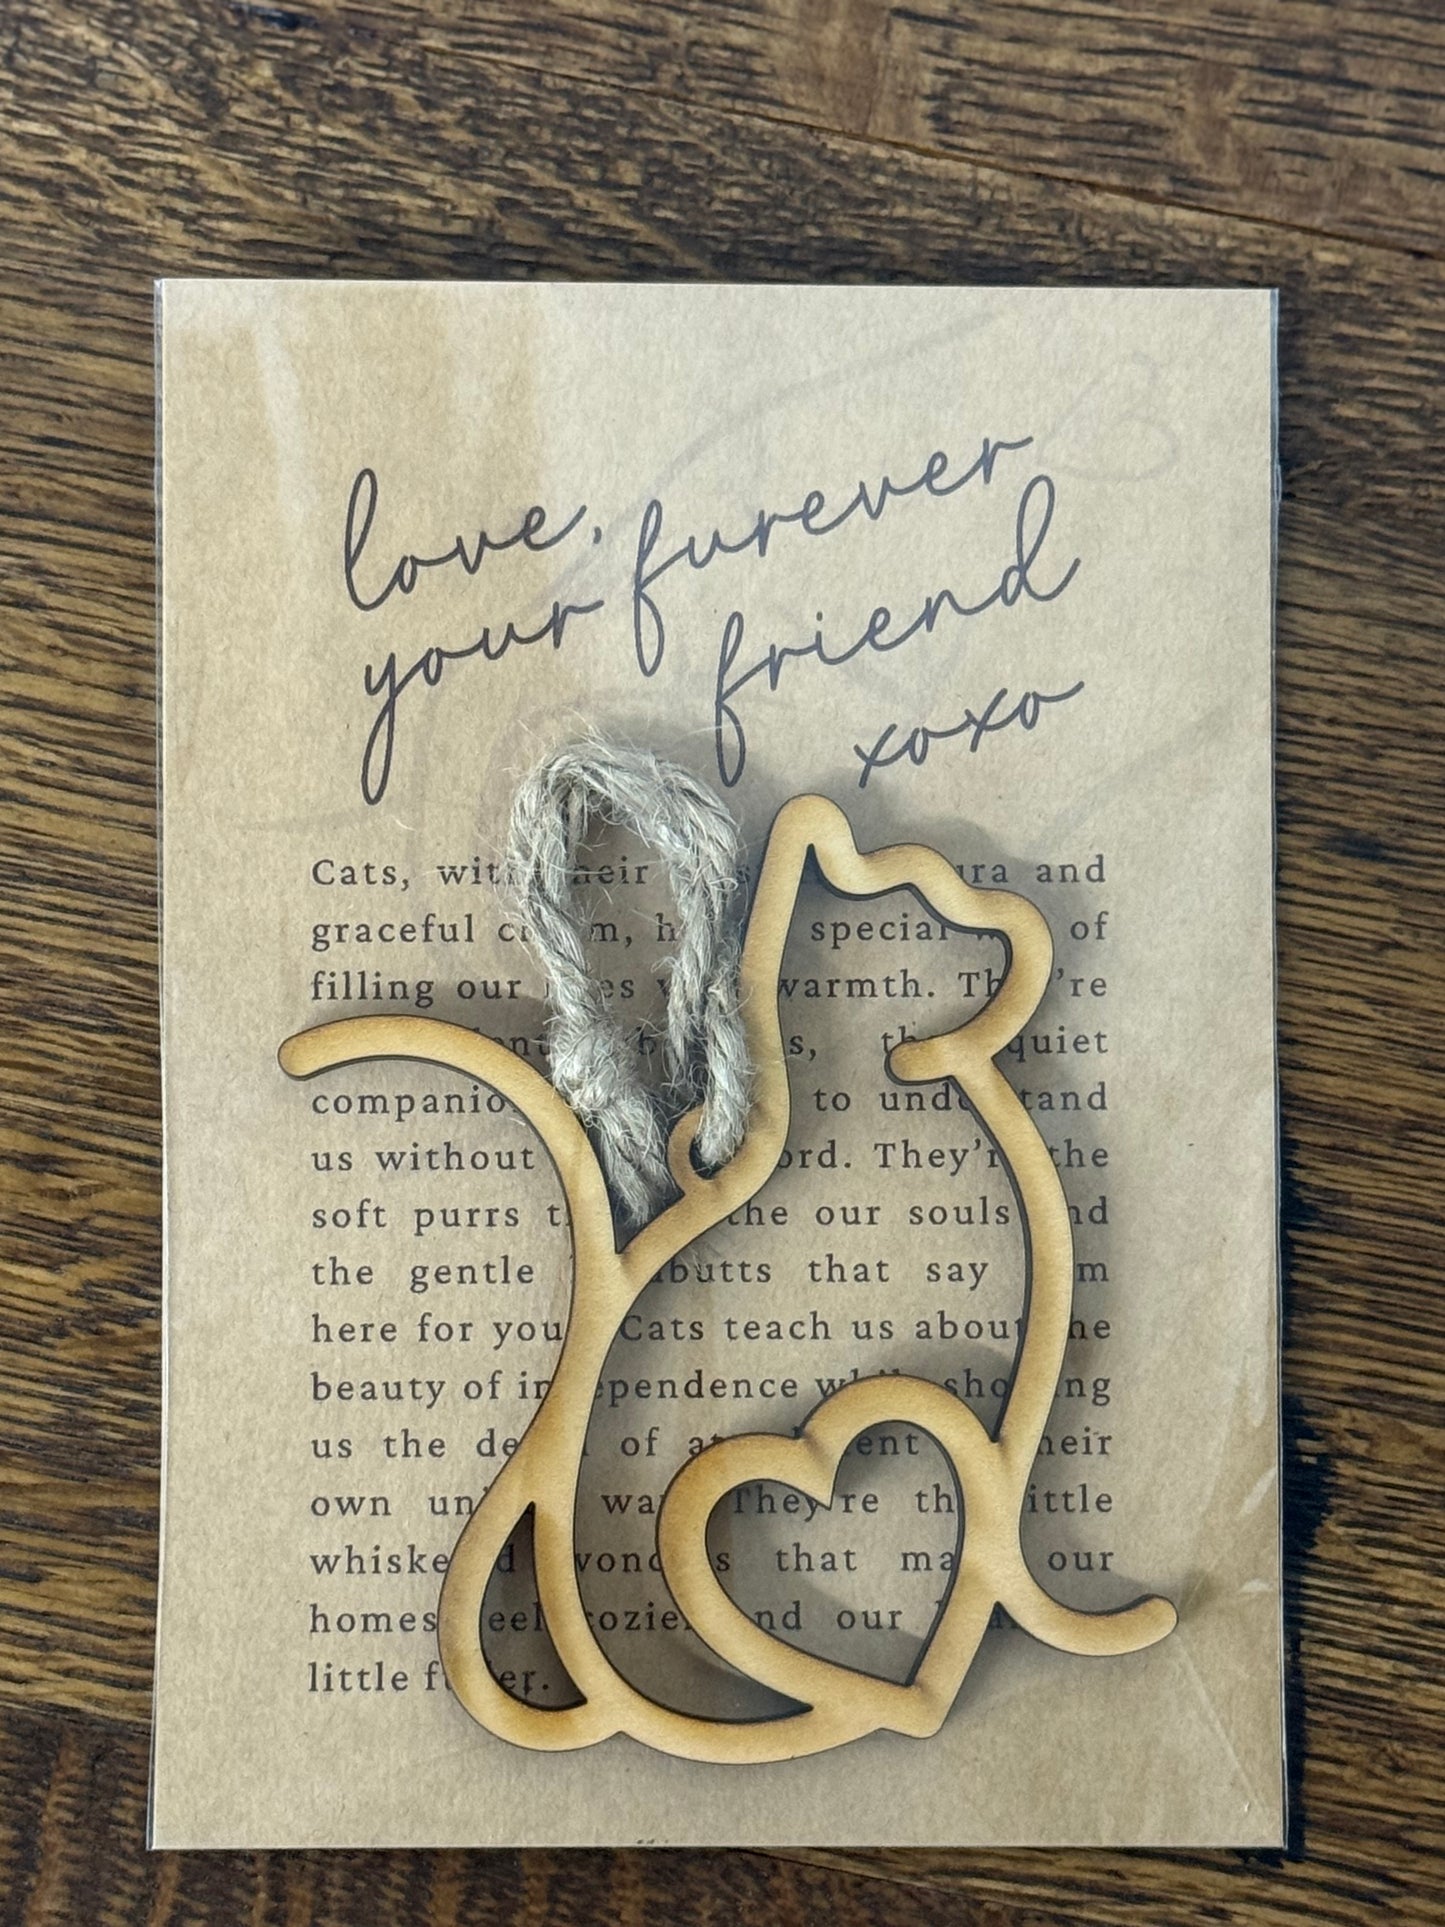 love,
your furever
friend
xoxo
Cats, with their and
graceful charm, special of
filling our lives with warmth. They're
quiet
companions to understand
us without word. They're the
soft purrs the our souls and
the gentle headbutts that say
here for you Cats teach us about the
beauty of independence while showing
us the of their
own unique way They're the little
whiskered wonders that make our
homes feel cozier and our
little fuller.